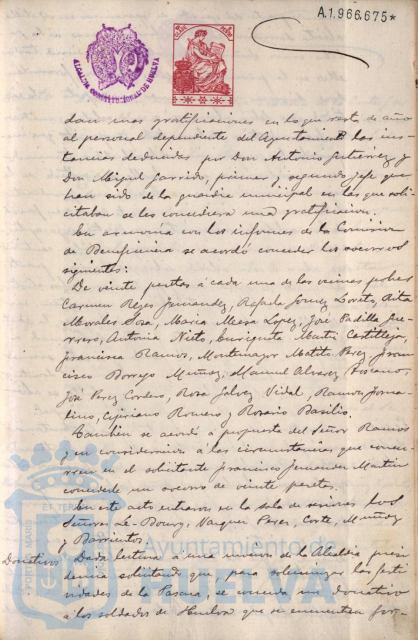 A.1.966.675*
ALCALDIA CONSTITUCIONAL DE HUELVA
dan unas gratificaciones en lo que resta de año
al personal dependiente del Ayuntamiento las ins-
tancias deducidas por Don Antonio Gutierrez y
Don Miguel Garrido, primer y segundo jefe que
han sido de la guardia municipal en las que soli-
citaban se les concediera una gratificacion.
En armonia con los informes de la Comision
de Beneficencia se acordó conceder los socorros
siguientes:
De veinte pesetas á cada una de las vecinas pobres
Carmen Reyes Fernandez, Rafaela Gomez Loreto, Aita
Morales Sosa, Maria Mesa Lopez, José Padilla Gue-
rrero, Antonia Nieto, Enriqueta Martin Castilleja,
Francisca Ramos, Montemayor Matito Perez, Fran-
cisco Borrego Muñoz, Manuel Alvarez
José Perez Cordero, Rosa Galvez Vidal, Ramon
Cipriano Romero y Rosario Basilio.
Tambien se acordó á propuesta del Señor Ramos
y en consideracion á las circunstancias que concu-
rren en el solicitante Francisco Fernandez Martin
concederle un socorro de veinte pesetas.
En este acto entraron en la sala de sesiones los
Señores Le-Bourg, Vazquez Perez, Corte, Muñoz
y Barrientos.
Donativos Dada lectura á una mocion de la Alcaldia presi-
dencia solicitando que, para solemnizar las festi-
vidades de la Pascua, se conceda un donativo
á los soldados de Huelva que se encuentran for-
Ayuntamiento de
HUELVA